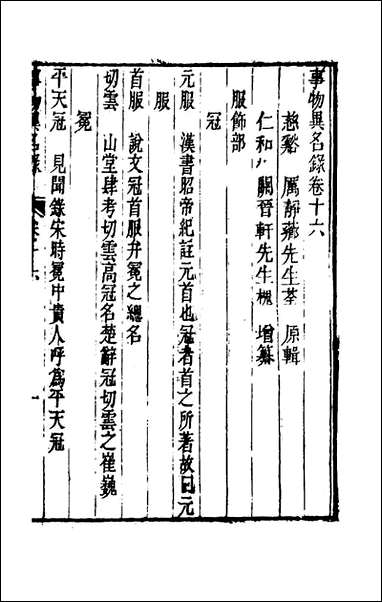 事物異名錄卷十六
慈谿 厲靜薌先生荃 原輯
仁和 關晉軒先生槐 增纂
服飾部
冠
元服 漢書昭帝紀註元首也冠者首之所著故曰元
服
首服 說文冠首服弁冕之總名
切雲 山堂肆考切雲高冠名楚辭冠切雲之崔巍
冕
平天冠 見聞錄宋時冕中貴人呼爲平天冠
事物異名錄 卷十六 一